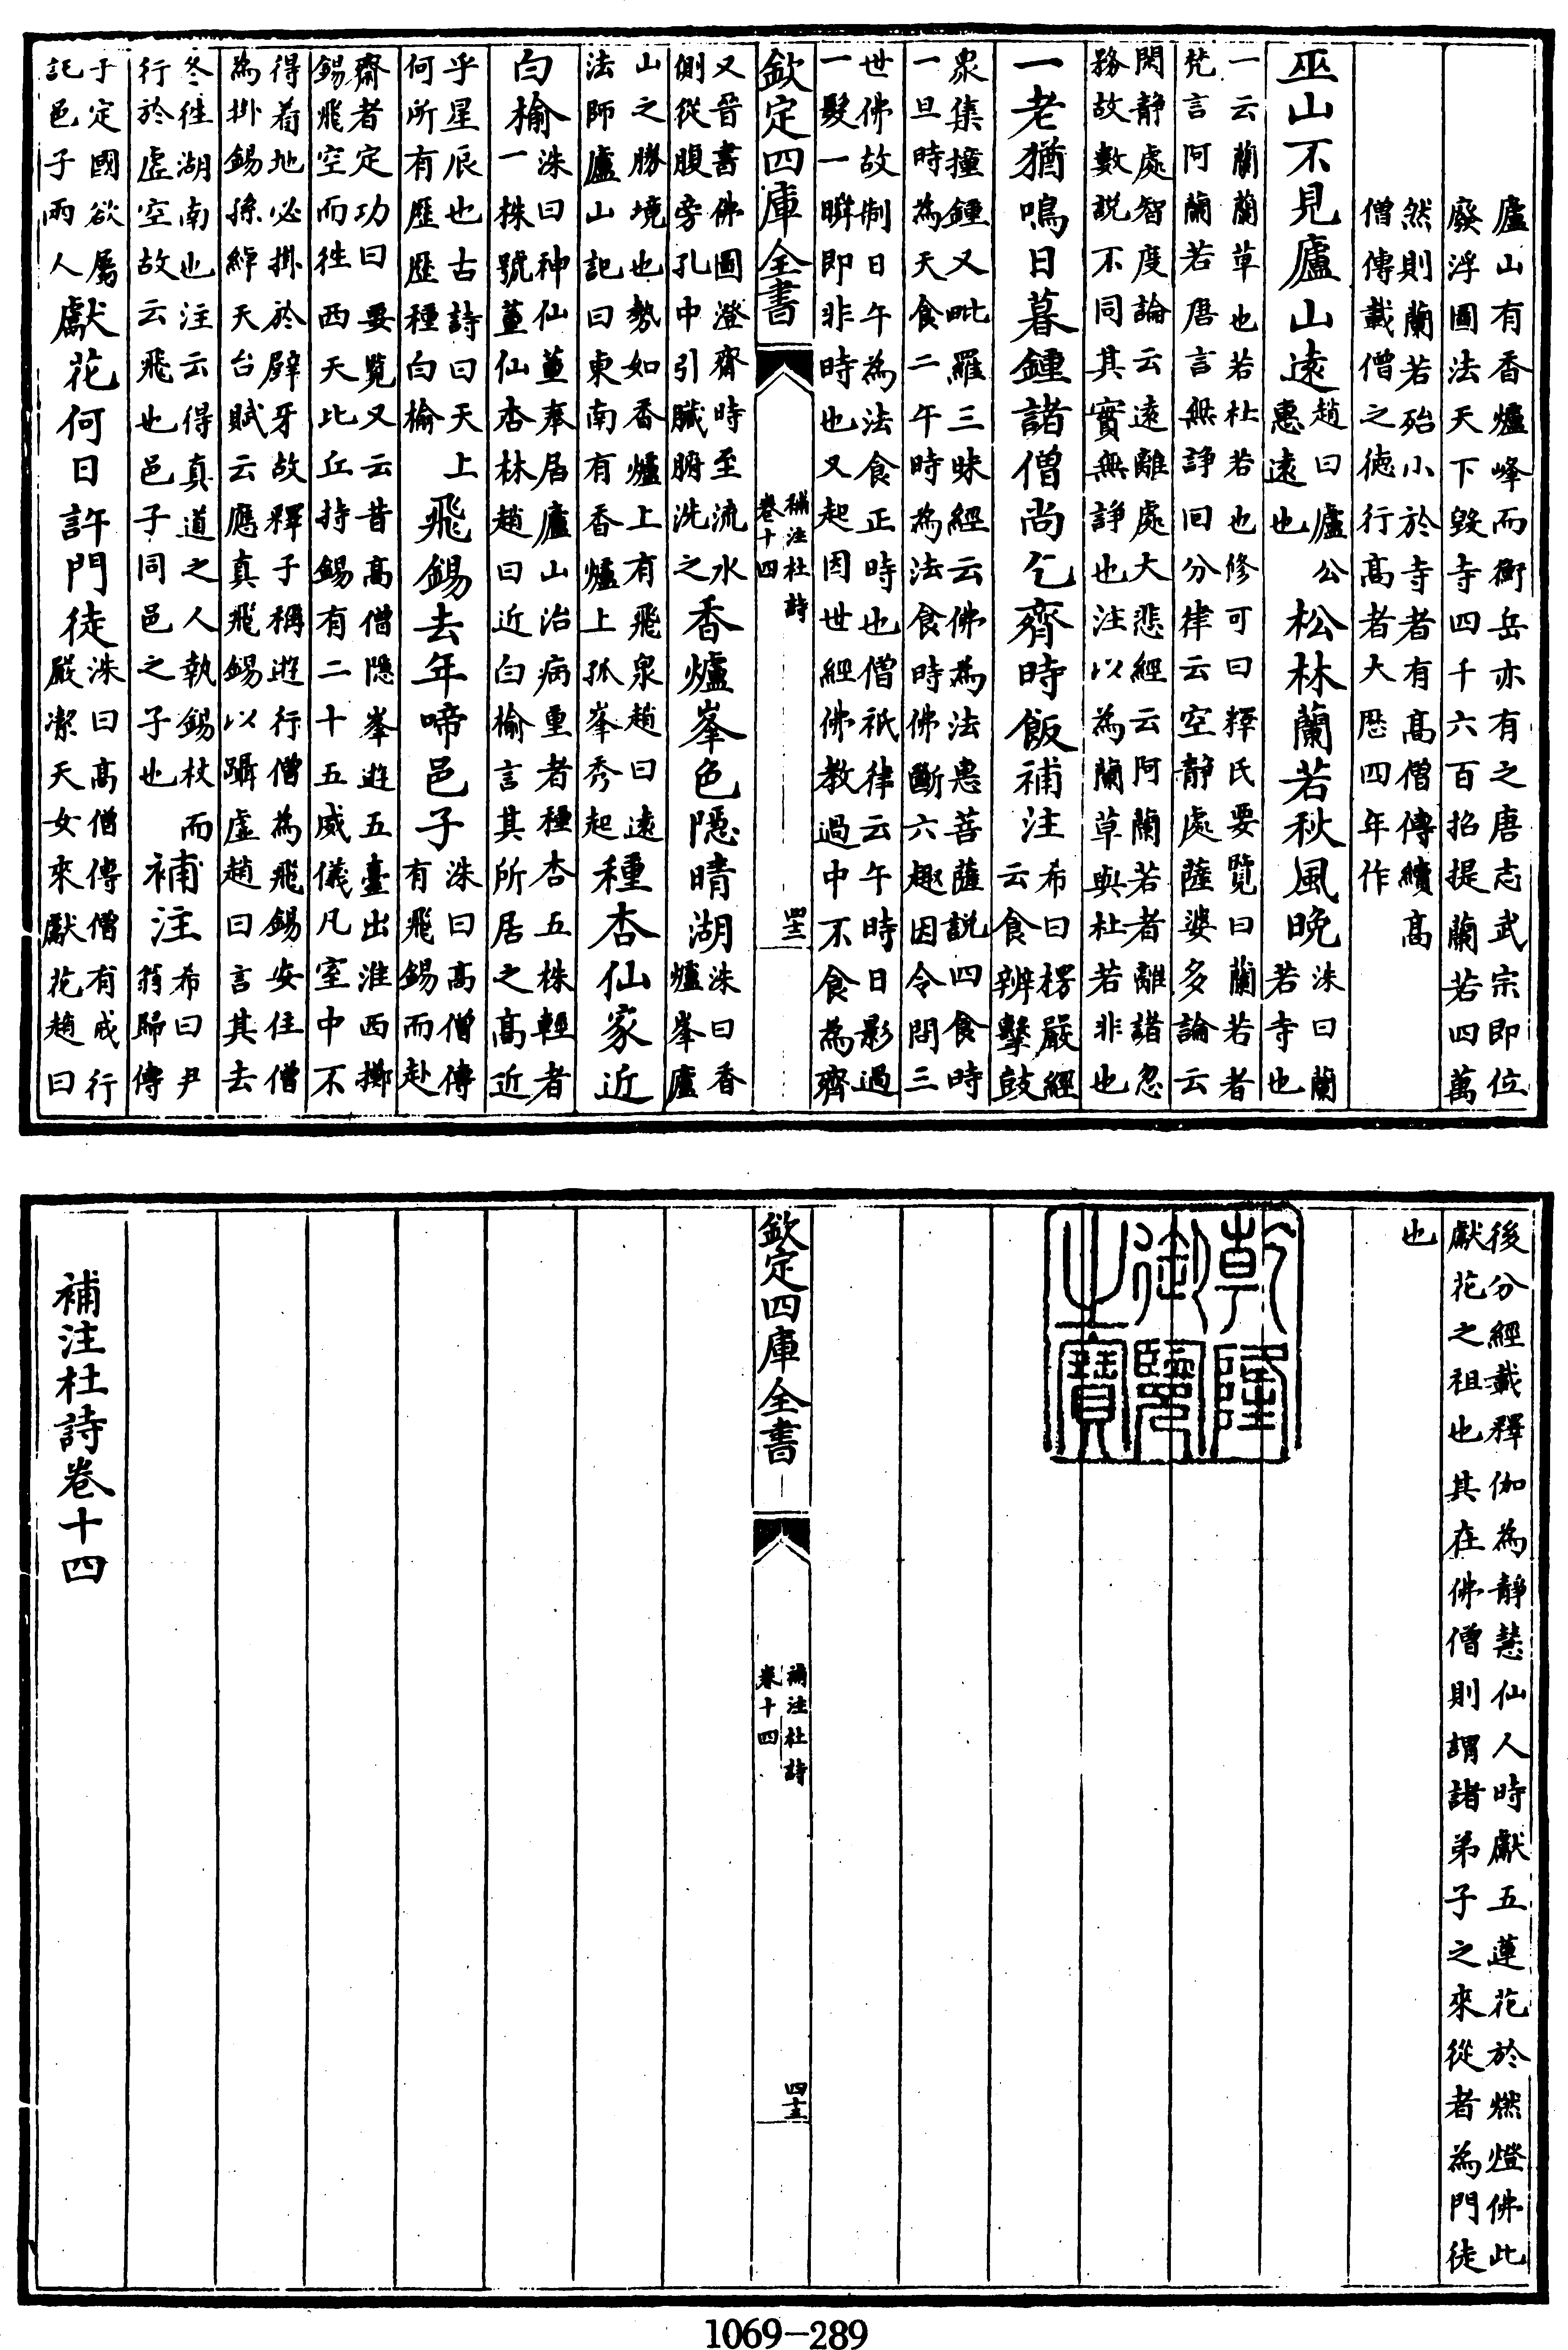 廬山有香爐峰而衡岳亦有之唐志武宗即位
廢浮圖法天下毀寺四千六百招提蘭若四萬
然則蘭若殆小於寺者有高僧傳續高
僧傳載僧之徳行高者大厯四年作
巫山不見廬山逺趙曰廬公惠逺也松林蘭若秋風晚洙曰蘭若寺也
一云蘭蘭草也若杜若也修可曰釋氏要覽曰蘭若者
梵言阿蘭若唐言無諍回分律云空静處薩婆多論云
閑静處智度論云逺離處大悲經云阿蘭若者離諸忽
務故數説不同其實無諍也注以為蘭草與杜若非也
一老猶鳴日暮鍾諸僧尚乞齊時飯補注希曰楞嚴經云食辨擊鼓
衆集撞鍾又毗羅三昧經云佛為法恵菩薩説四食時
一旦時為天食二午時為法食時佛斷六趣因令問三
世佛故制日午為法食正時也僧祇律云午時日影過
一髮一瞬即非時也又起因世經佛教過中不食為齊
欽定四庫全書
補注杜詩
卷十四
四十二
又晉書佛圖澄齋時至流水
側從腹旁孔中引臟腑洗之香爐峯色隠晴湖洙曰香爐峯廬
山之勝境也勢如香爐上有飛泉趙曰逺
法師廬山記曰東南有香爐上孤峯秀起種杏仙家近
白榆洙曰神仙董奉居廬山治病重者種杏五株輕者一株號董仙杏林趙曰近白榆言其所居之髙近
乎星辰也古詩曰天上
何所有歴歴種白榆飛錫去年啼邑子洙曰高僧傳有飛錫而赴
齋者定功曰要覽又云昔高僧隠峯遊五臺出淮西擲
錫飛空而徃西天比丘持錫有二十五威儀凡室中不
得着地必掛於壁牙故釋子稱遊行僧為飛錫安住僧
為掛錫孫綽天台賦云應真飛錫以躡虚趙曰言其去
冬徃湖南也注云得真道之人執錫杖而
行於虚空故云飛也邑子同邑之子也補注希曰尹翁歸傳
子定國欲屬
託邑子兩人獻花何日許門徒洙曰高僧傳僧有戒行嚴潔天女來獻花趙曰
後分經載釋伽為静慧仙人時獻五蓮花於燃燈佛此
獻花之祖也其在佛僧則謂諸弟子之來從者為門徒
也
乾隆
御覽
之寶
欽定四庫全書
補注杜詩
卷十四
四十三
補注杜詩卷十四
1069-289